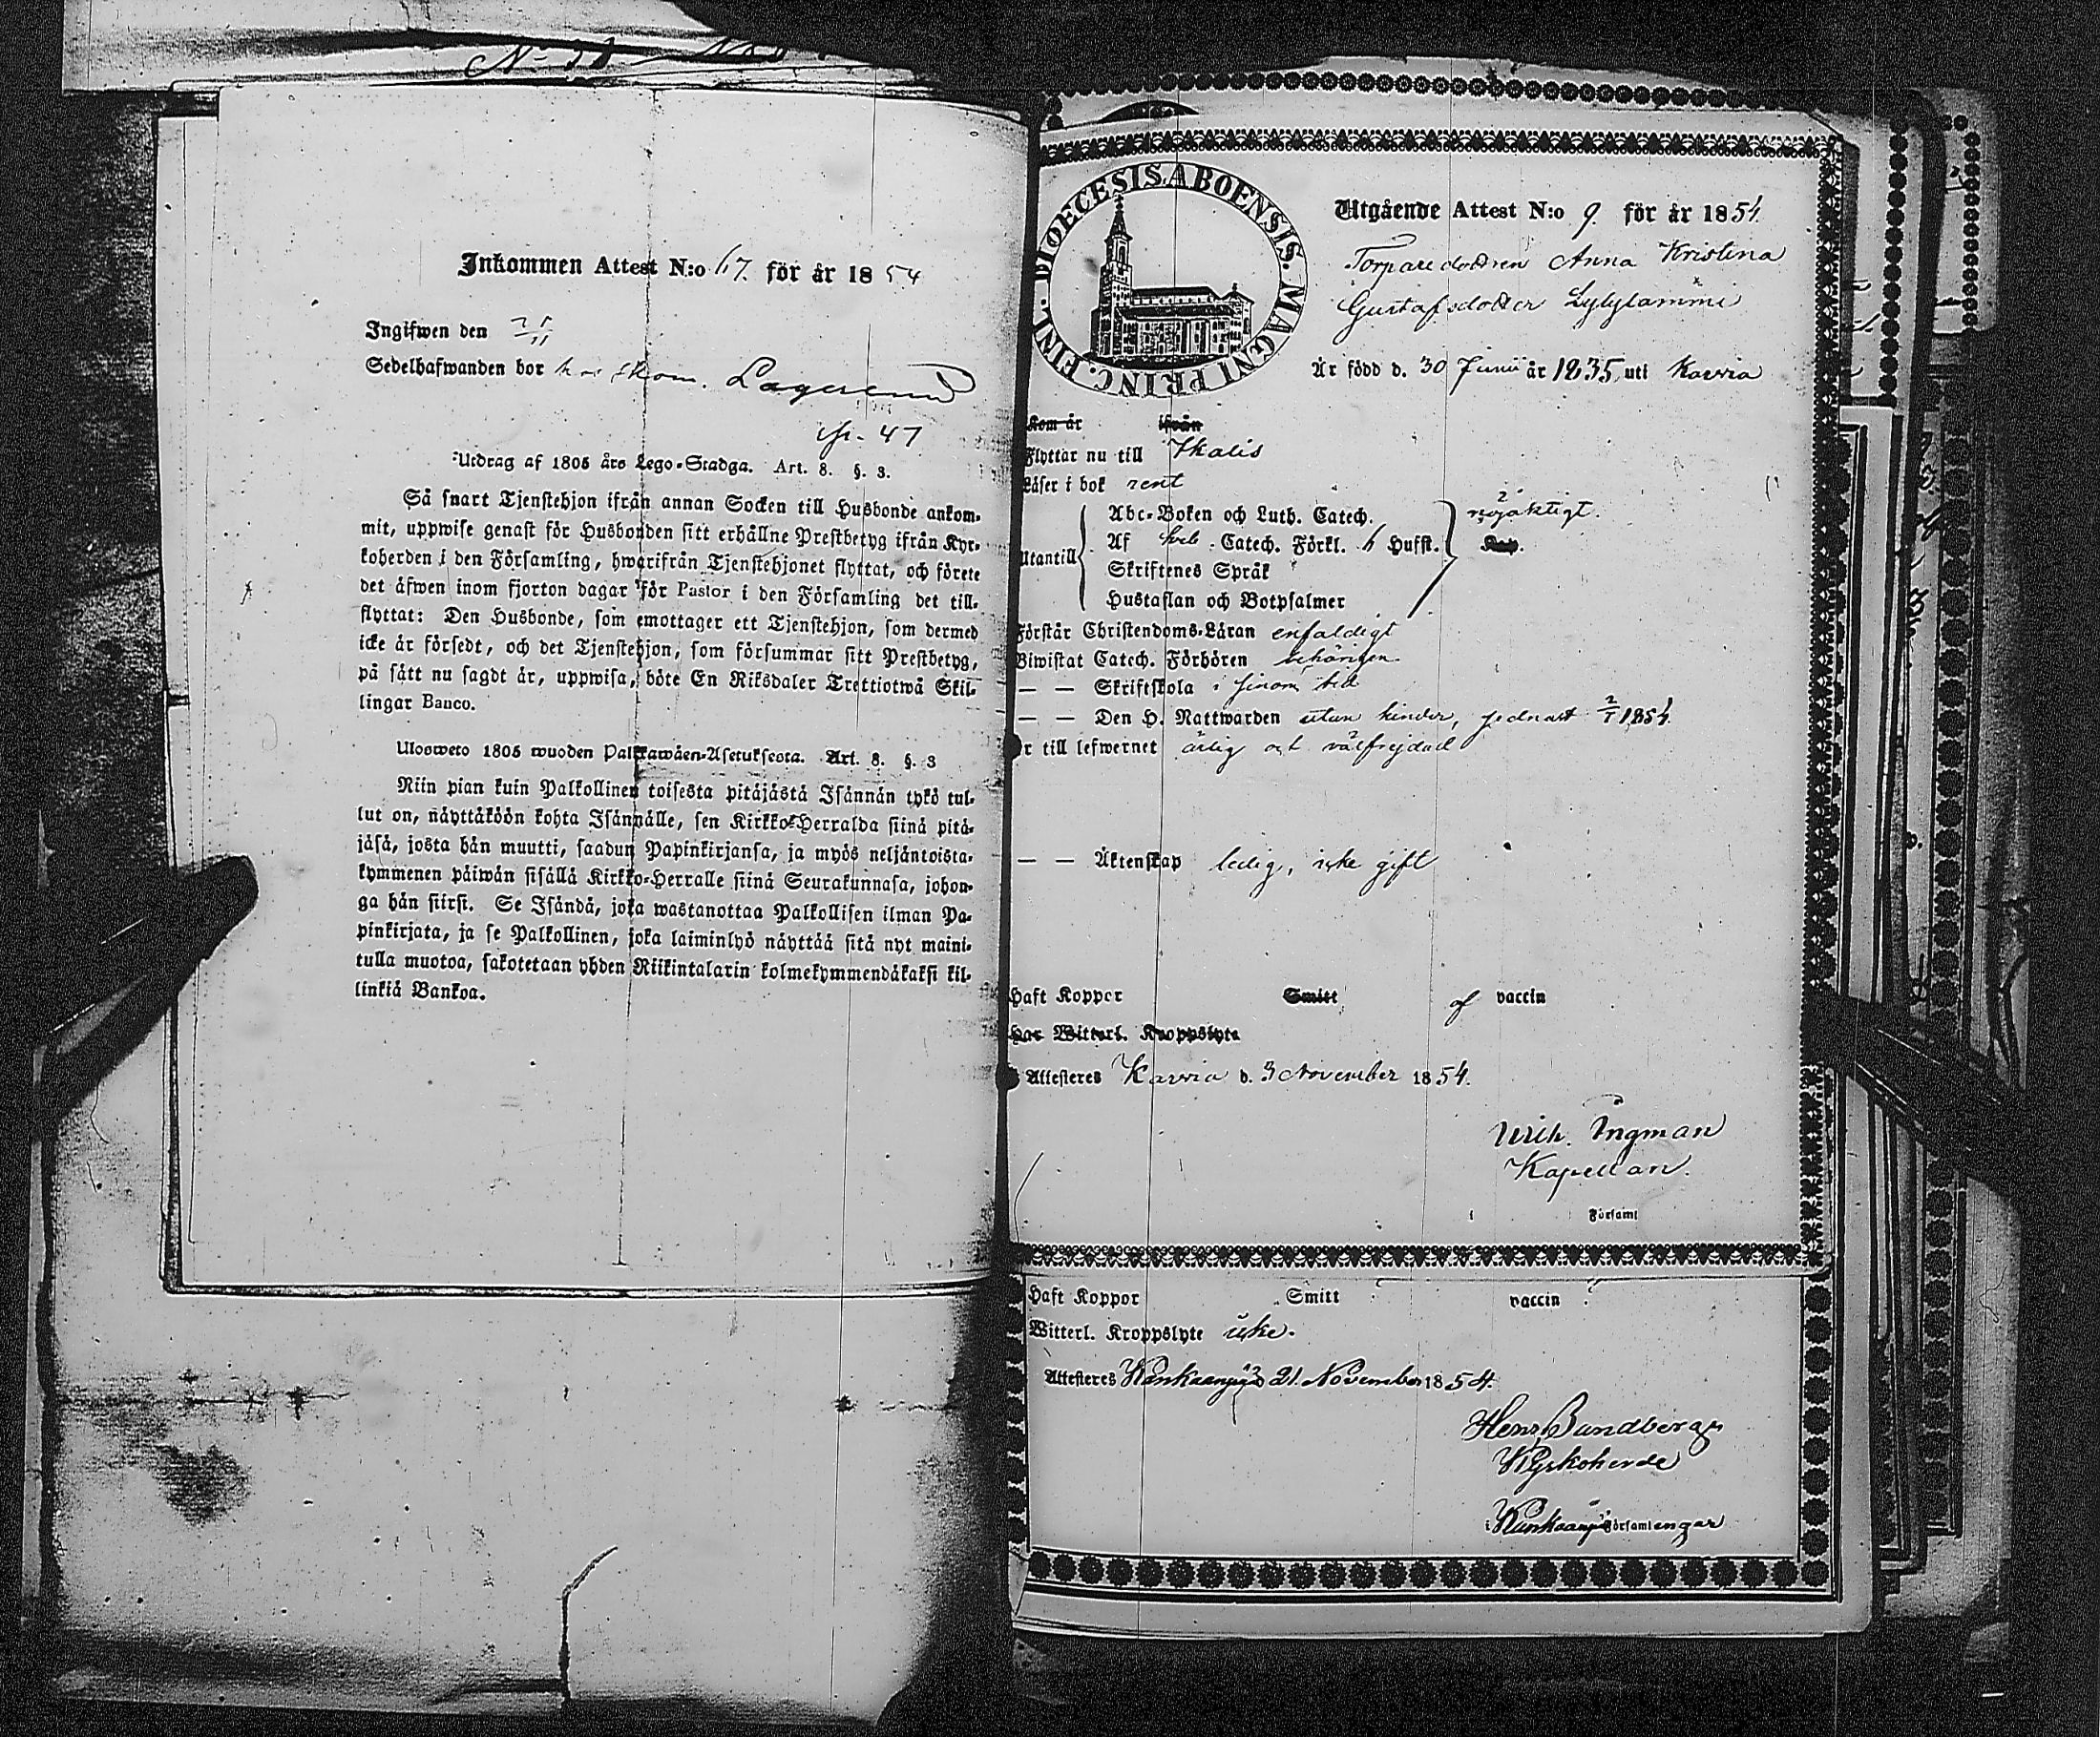 Inkommen Attest N:o 67. för år 1854
Ingifwen den
Sedelhafwanden bor
47
Utdrag af 1805 års Lego-Stadga. Art. 8. §. 3.
Så snart Tjenstehjon ifrån annan Socken till Husbonde ankom-
mit, uppwise genast för Husbonden sitt erhållne Prestbetyg ifrån Kyr-
koherden i den Församling, hwarifrån Tjenstehjonet flyttat, och förete
det åfwen inom fjorton dagar för Pastor i den Församling det till-
flyttat: Den Husbonde, som emottager ett Tjenstehjon, som dermed
icke är försedt, och det Tjenstehjon, som försummar sitt Prestbetyg,
på sått nu sagdt är, uppwisa, böte En Riksdaler Trettiotwå Skil-
lingar Banco.
Ulosweto 1805 wuoden Palkkawäen-Asetuksesta. Art. 8. §. 3
Niin pian kuin Palkollinen toisesta pitäjästä Isännän tykö tul-
lut on, näyttäköön kohta Isännälle, sen Kirkko-Herralda siinä pitä-
jäsä, josta hän muutti, saadun Papinkirjansa, ja myös neljäntoista-
kymmenen päiwän sisällä Kirkko-Herralle siinä Seurakunnasa, johon-
ga hän siirsi. Se Isändä, joka wastanottaa Palkollisen ilman Pa-
pinkirjata, ja se Palkollinen, joka laiminlyö näyttää sitä nyt maini-
tulla muotoa, sakotetaan yhden Riikintalarin kolmekymmendäkaksi kil-
linkiä Bankoa.
DIOECESIS ABOENSIS. MAGNI PRINC. FINL.
Utgående Attest N:o 9. för år 1854.
Torparedottren Anna Kristina
Gustafsdotter Lylylammi
Är född d. 30 Junii år 1835, uti Karvia
Kom år ifrån
Flyttar nu till Ikalis
Läser i bok rent
Utantill
Abc-Boken och Luth. Catech.
Af Catech. Förkl. Hufst.
Skriftenes Språk
Hustaflan och Botpsalmer
nöjaktigt.
Förstår Christendoms-Läran enfaldigt
Biwistat Catech. Förhören behörigen
— — Skriftskola i sinom tid
— — Den H. Nattwarden utan hinder, sednast 2/7 1854.
Är till lefwernet ärlig och välfrejdad
— — Äktenskap ledig, icke gift
Haft Koppor Smitt af vaccin
Har Witterl. Kroppslyte
Attesteres Karvia d. 3 November 1854.
Wilh. Ingman
Kapellan.
i Församl
Haft Koppor Smitt vaccin
Witterl. Kroppslyte icke.
Attesteres Kankaanpää 21. November 1854.
Henr. Sundberg
Kyrkoherde
i Kankaanpää Församlengar